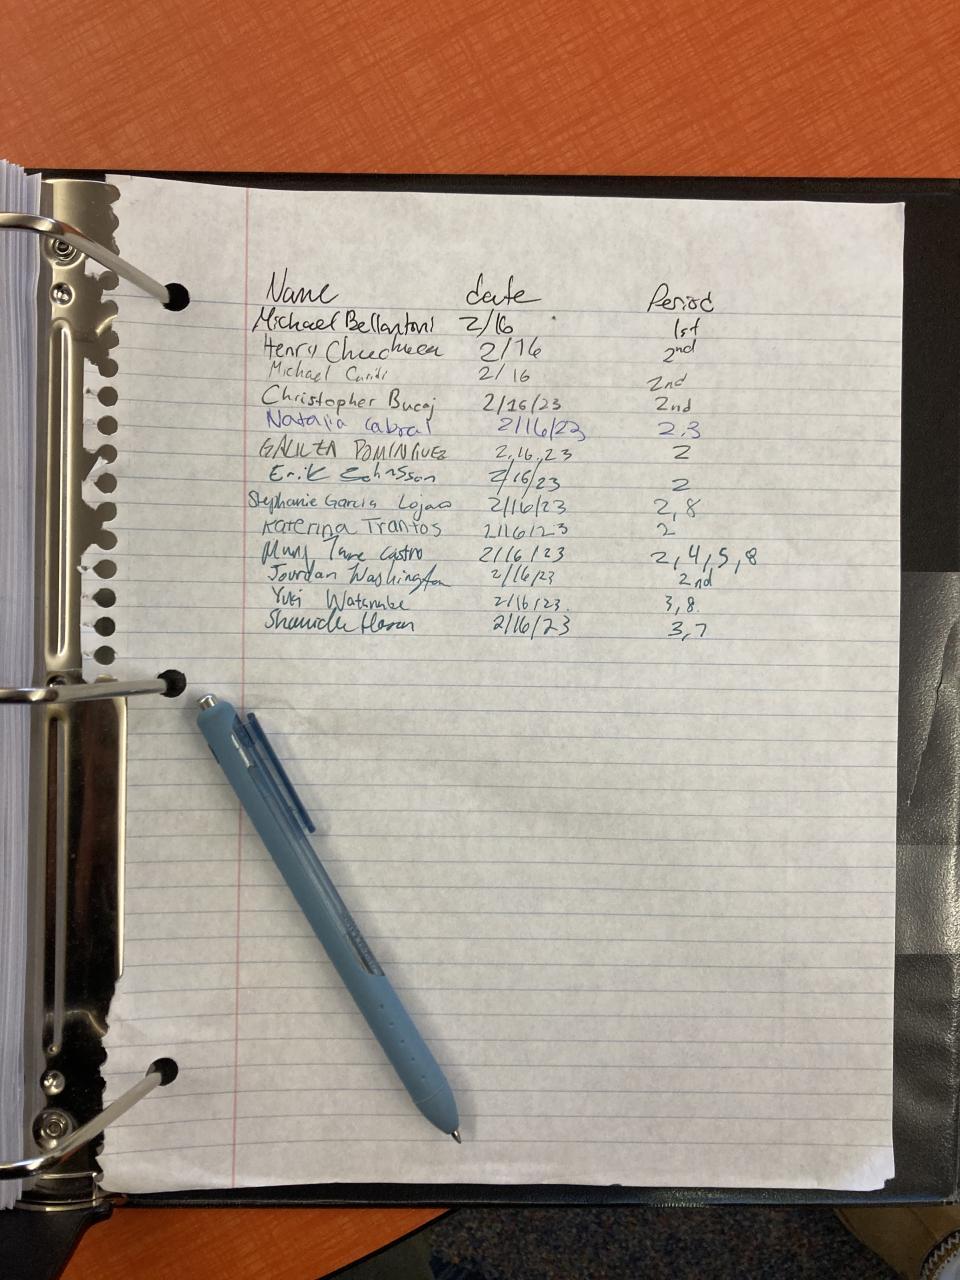 Name date Period
Michael Bellantoni 2/16 1st
Henry 2/16 2nd
Michael 2/16 2nd
Christopher Bucaj 2/16/23 2nd
Natalia Cabral 2/16/23 2.3
DOMINGUEZ 2.16.23 2
Erik Johnsson 2/16/23 2
Stephanie Garcia Lojano 2/16/23 2,8
Katerina Trantos 2/16/23 2
Jane Castro 2/16/23 2,4,5,8
Jourdan Washington 2/16/23 2nd
Yuki Watanabe 2/16/23. 3,8.
2/16/23 3,7